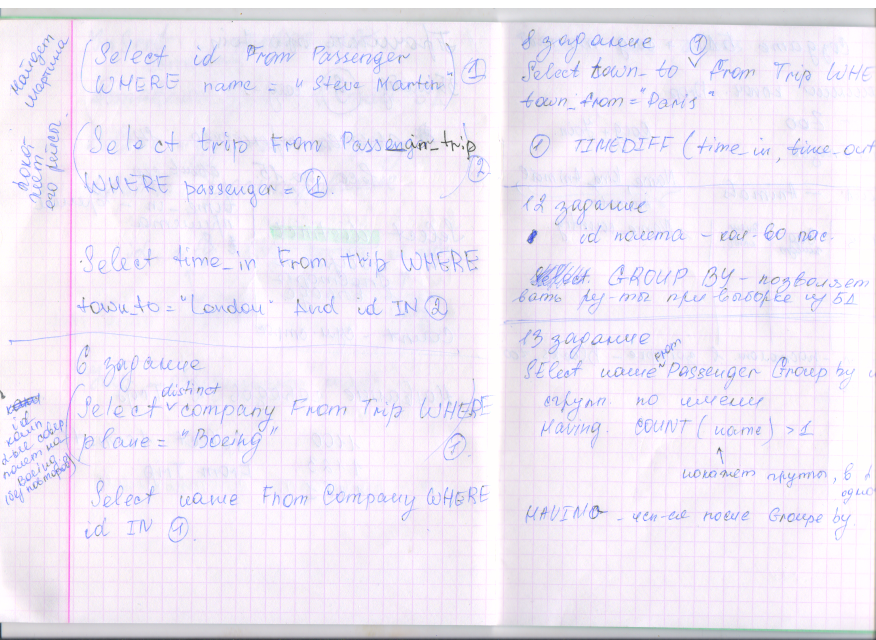 найдет
Мартина
(Select id From Passenger
WHERE name = "Steve Martin") ①
(Select trip From Passenger_trip
WHERE passenger = ①. ) ②
его рейсы.
Select time_in From trip WHERE
town_to = "London" And id IN ②
6 задание
distinct
(Select ˅ company From Trip WHERE
plane = "Boeing" ) ①.
id
комп
полет на
Boeing
(без повторов)
Select name From Company WHERE
id IN ①.
8 задание ①
Select town_to ˅ From Trip WHE
town_from = "Paris"
① TIMEDIFF (time_in, time_out
12 задание
id полета - кол-во пас.
GROUP BY - позволяет
вать ре-ты при выборке из БД
13 задание
From
SElect name ˅ Passenger Group by
сгрупп. по имени
Having. COUNT (name) > 1
покажет группы, в
одно
HAVING - исп-ся после Groupe by